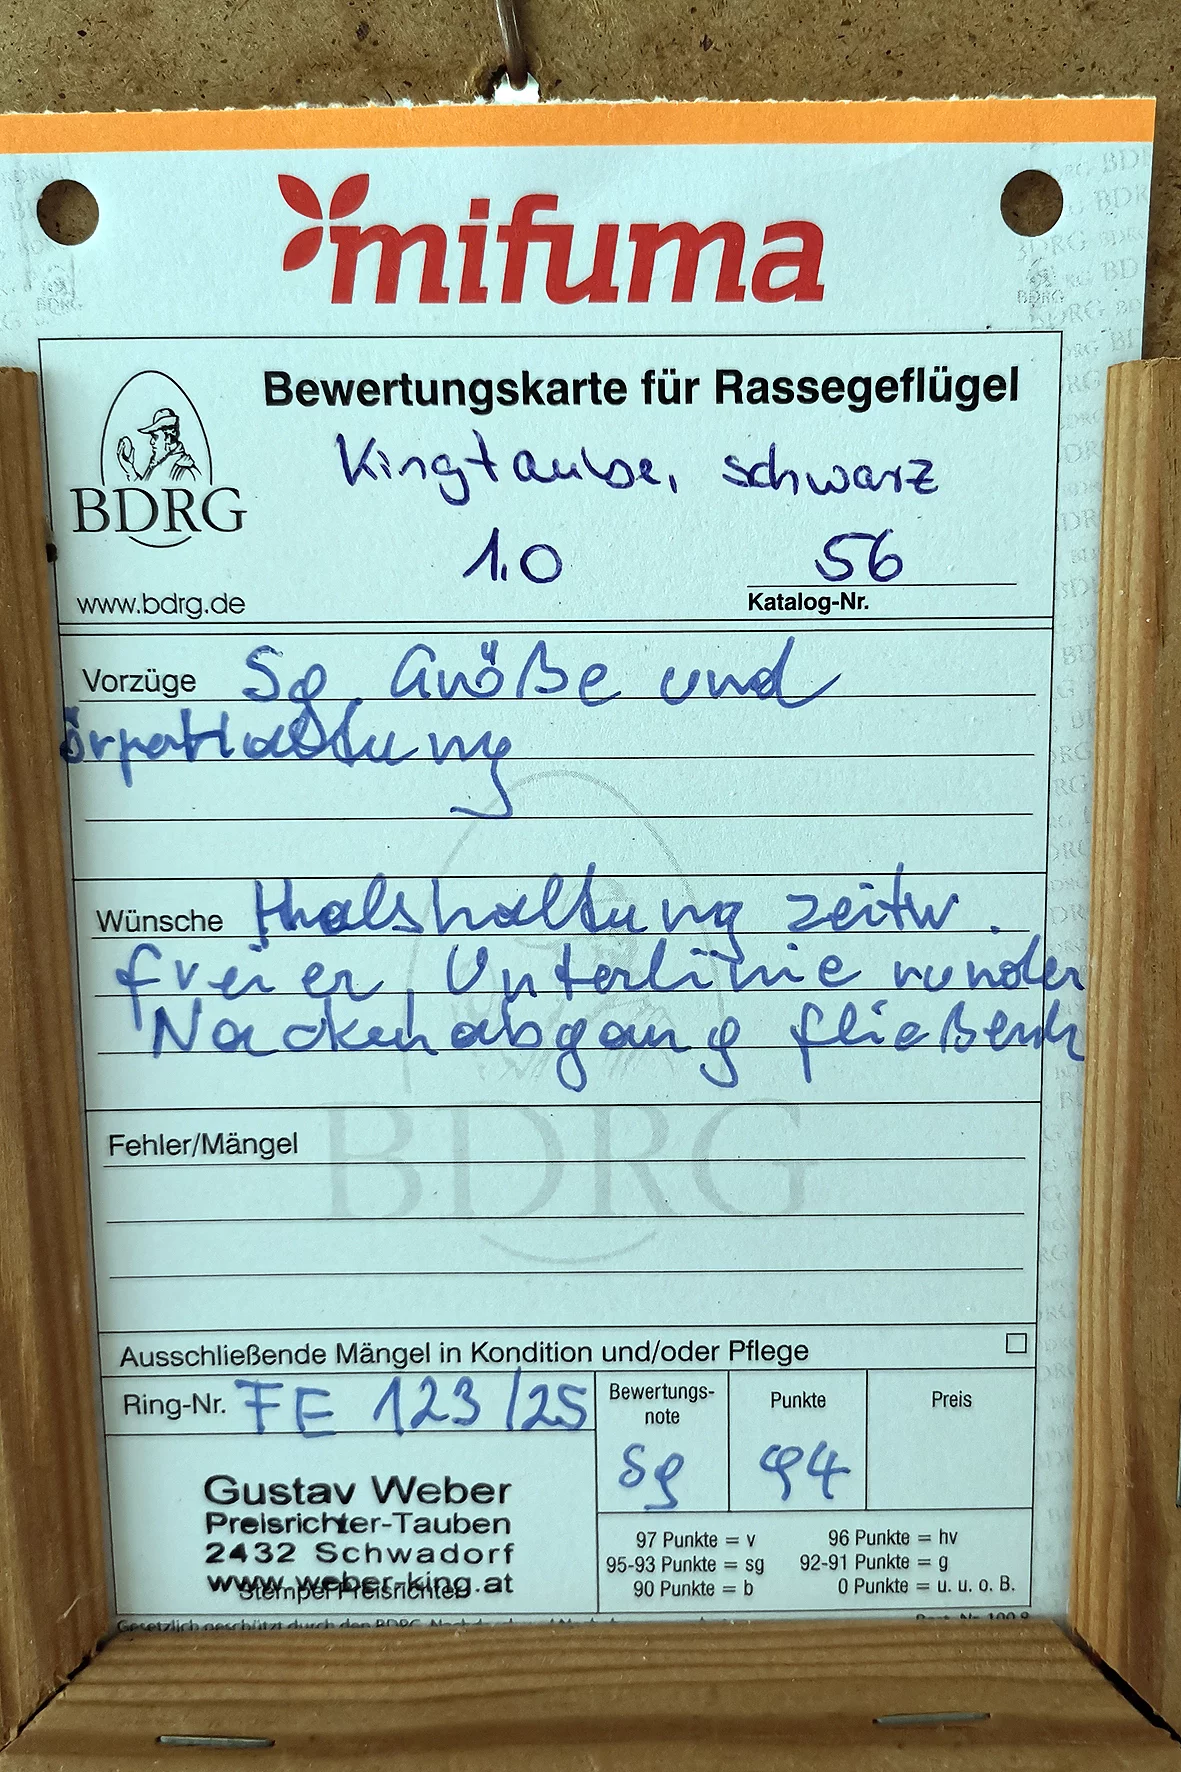 mifuma
Bewertungskarte für Rassegeflügel
Kingtaube, schwarz
BDRG
1.0 56
www.bdrg.de Katalog-Nr.
Vorzüge Sg. Größe und
örperhaltung
Wünsche Halshaltung zeitw.
freier, Unterlinie runder
Nackenabgang fließend
Fehler/Mängel
BDRG
Ausschließende Mängel in Kondition und/oder Pflege
Ring-Nr. FE 123/25
Bewertungs-
note
sg
Punkte
94
Preis
Gustav Weber
Preisrichter-Tauben
2432 Schwadorf
www.weber-king.at
Stempel Preisrichter
97 Punkte = v 96 Punkte = hv
95-93 Punkte = sg 92-91 Punkte = g
90 Punkte = b 0 Punkte = u. u. o. B.
Gesetzlich geschützt durch den BDRG.